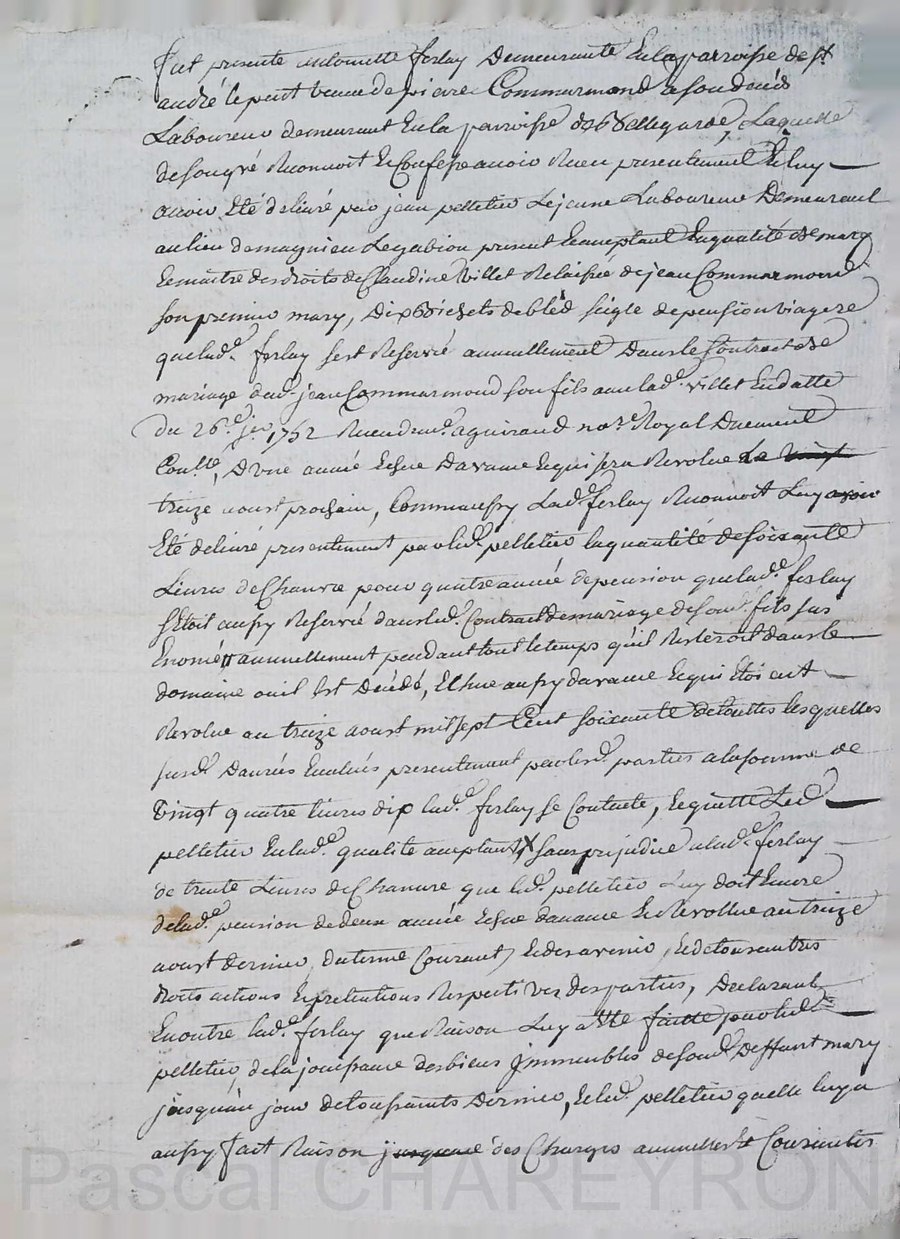 fut presente antoinette ferlay Demeurante En la parroisse de st
andré le puit veuve de pierre Commarmond a son décés
Laboureur demeurant En la parroisse de Bellegarde, Laquelle
de son gré Reconnoit Et Confesse avoir Receu presentement Et luy
avoir Eté delivré par jean pelletier Le jeune Laboureur Demeurant
au lieu de magnieu Le gabion present Et acceptant En qualité de mary
Et maitre des droits de Claudine Villet Relaissée de jean Commarmond
son premier mary, Dix Bichets de bléd seigle de pension viagere
que lad.e ferlay s'est Reservée annuellement Dans le Contract de
mariage dud. jean Commarmond son fils avec lad.e villet En datte
du 26.e jer 1752 Receu du me. aguiraud no.re Royal Duement
Con.llé, D'une année Echue D'avance Et qui sera Revolue
treize aoust prochain, Comme aussy Lad.e ferlay Reconnoit Luy avoir
Eté delivré presentement par led. pelletier la quantité de soixante
Livres de Chanvre pour quatre année de pension que lad.e ferlay
s'Etoit aussy Reservée dans led. Contract de mariage de sond. fils sus
Enomé annuellement pendant tout le temps qu'il Resteroit dans le
domaine ou il Est Décédé, Echue aussy d'avance Et qui Etoient
Revolue au treize aoust mil sept Cent soixante de touttes lesquelles
susd. Danrées Evaluées presentement par lesd. parties a la somme de
Vingt quatre livres dix lad.e ferlay se Contente, Et quitte Led.
pelletier En lad.e qualité acceptant X sans prejudice a lad.e ferlay
de trente Livres de Chanvre que led. pelletier Luy doit Encore
de lad.e pension de deux année Echue d'avance Et Revollue au treize
aoust dernier, du terme Courant, Et des avenir, Et de tous autres
droits actions Et pretentions Respectives des parties, Declarant
En outre lad.e ferlay que Raison Luy a Eté faitte par led.
pelletier, de la jouissance des biens Immeubles de sond. Deffunt mary
jusqu'au jour de toussaints Dernier, Et led. pelletier qu'elle luy a
aussy fait Raison jusque des Charges annuelles Et Courantes
Pascal CHAREYRON